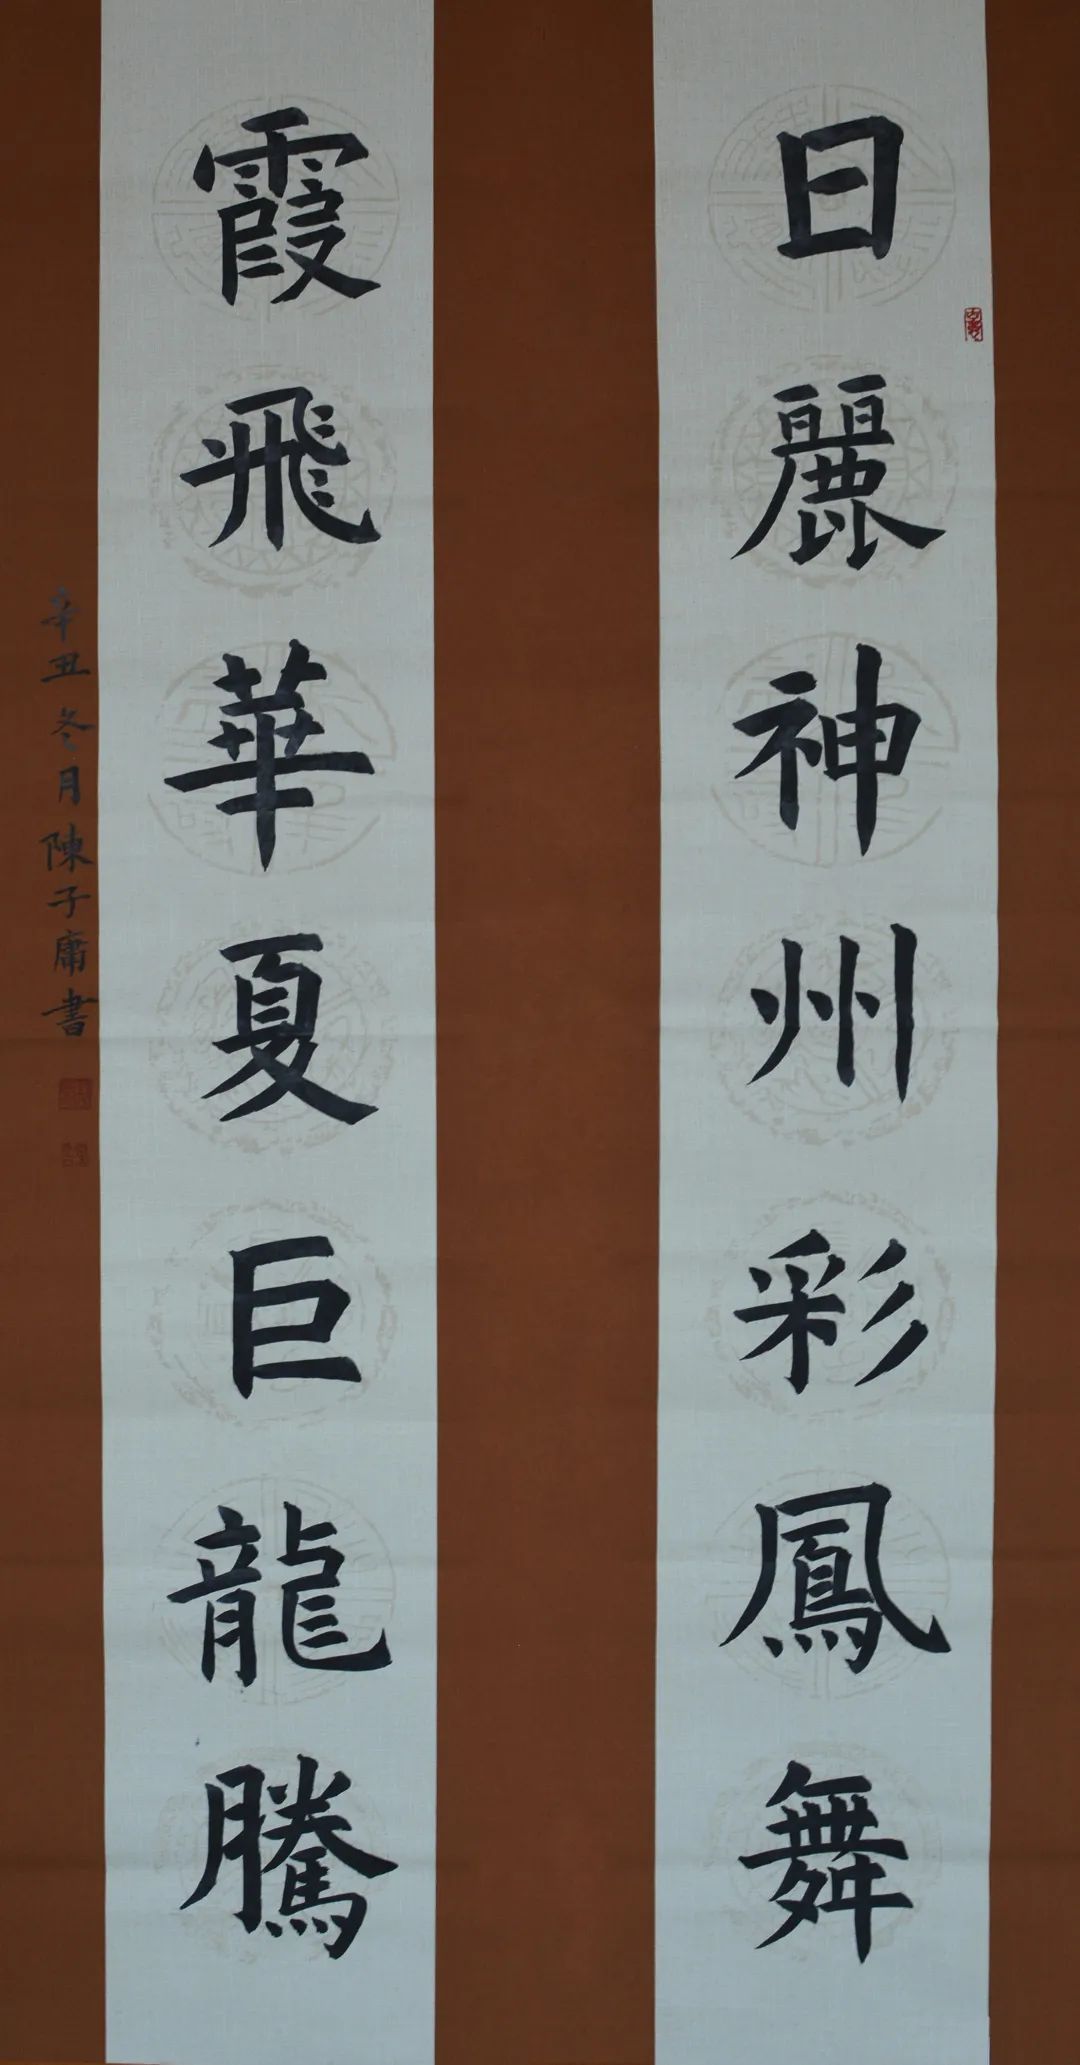 日麗神州彩鳳舞
霞飛華夏巨龍騰
辛丑冬月陳子庸書